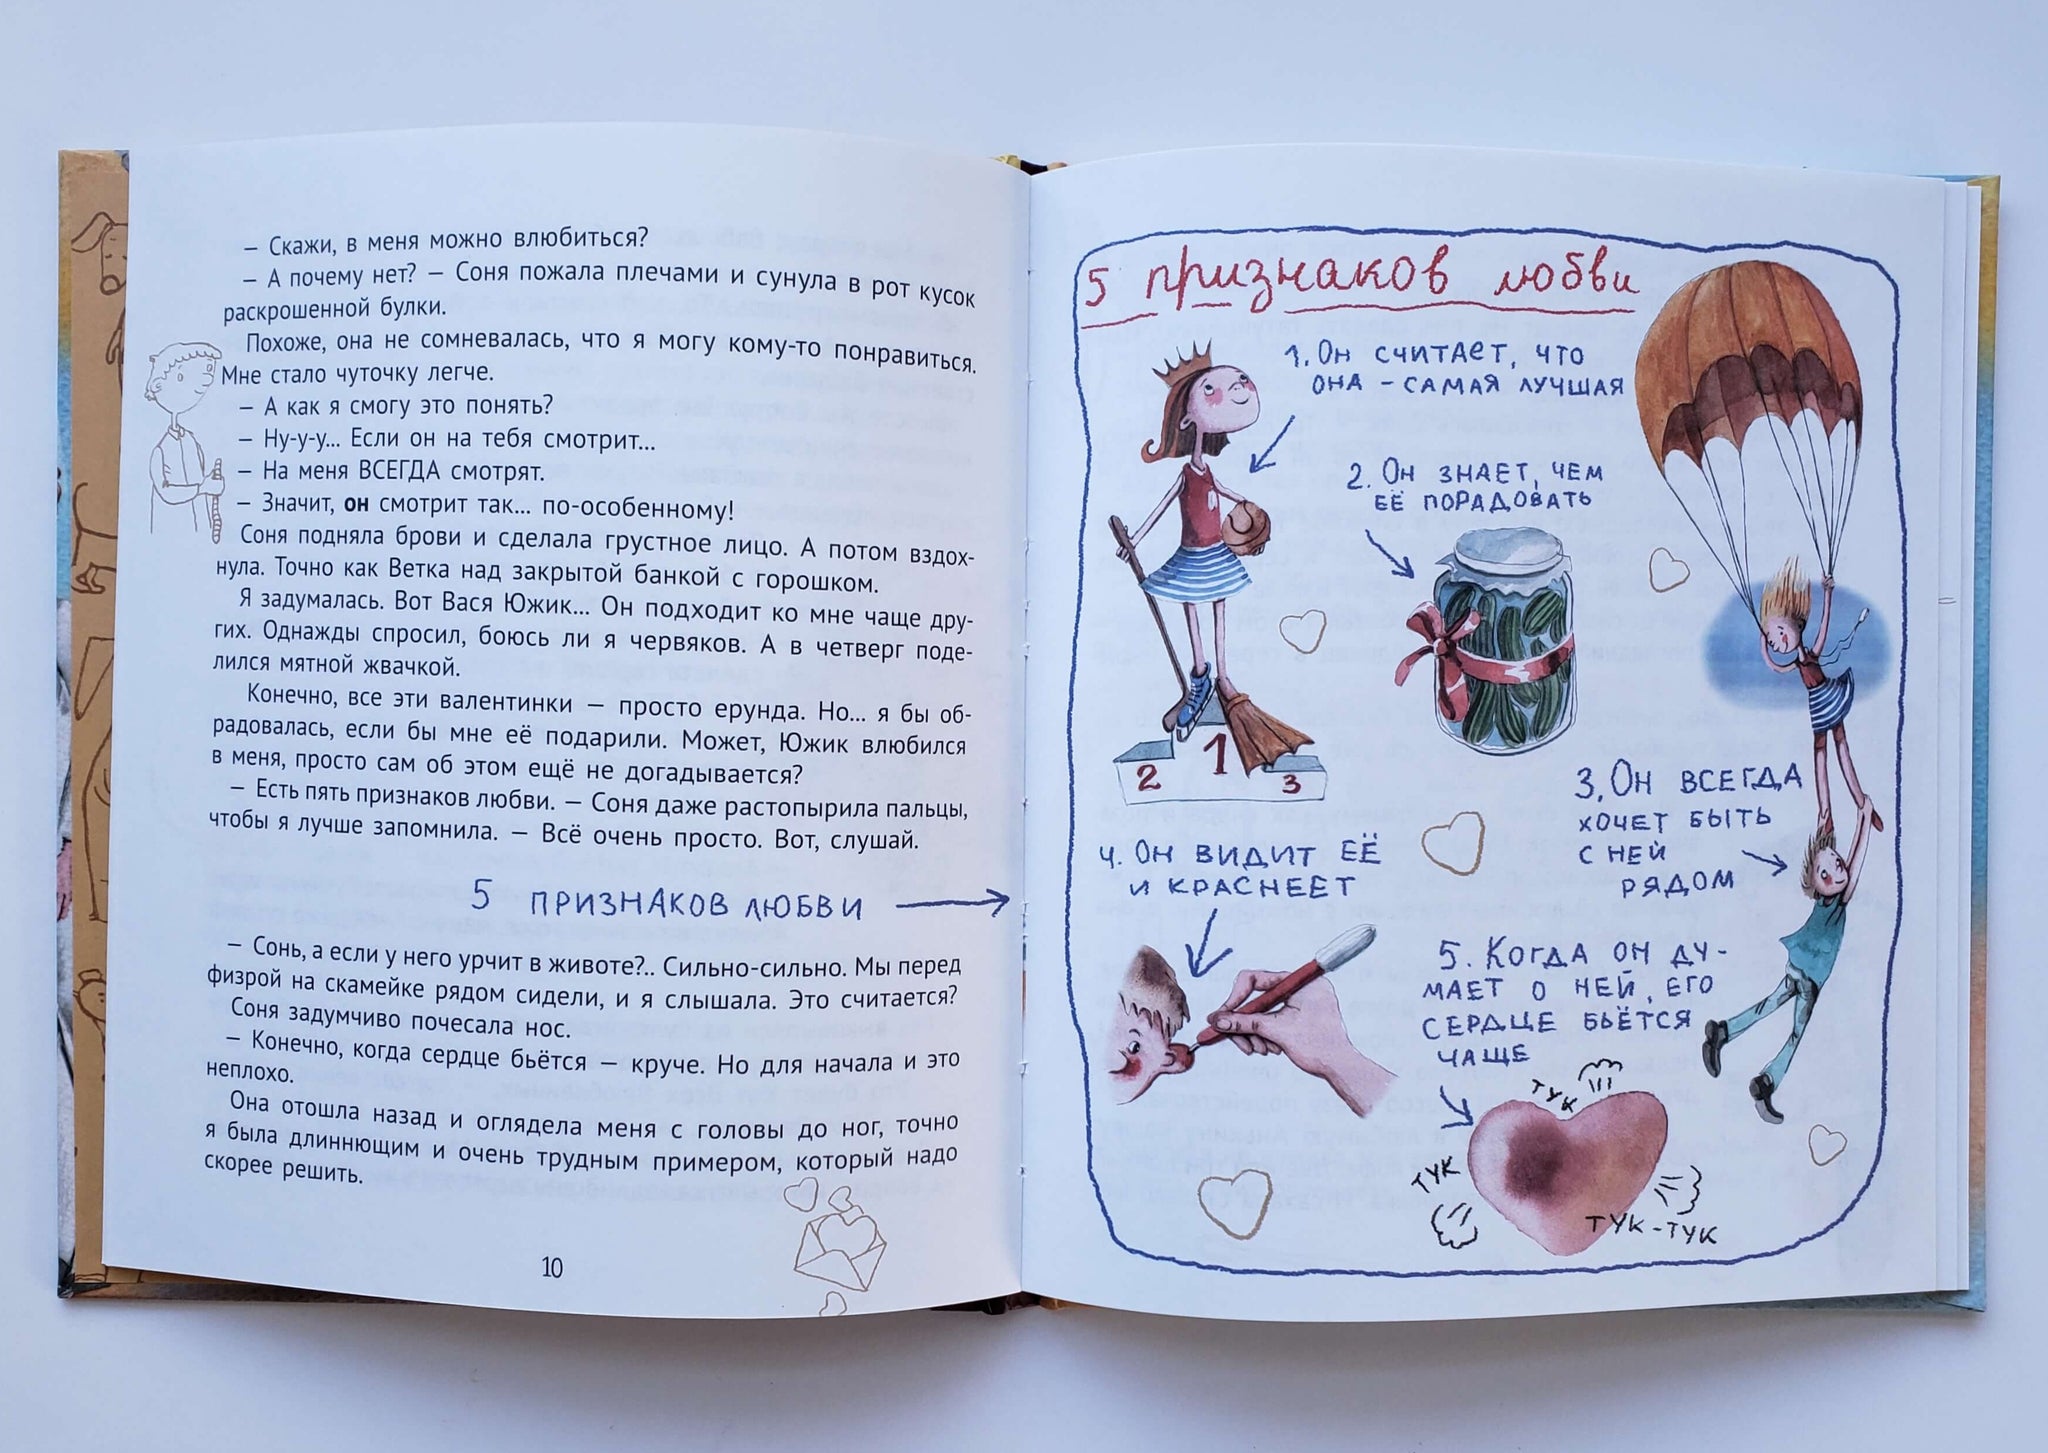 – Скажи, в меня можно влюбиться?
– А почему нет? – Соня пожала плечами и сунула в рот кусок
раскрошенной булки.
Похоже, она не сомневалась, что я могу кому-то понравиться.
Мне стало чуточку легче.
– А как я смогу это понять?
– Ну-у-у... Если он на тебя смотрит...
– На меня ВСЕГДА смотрят.
– Значит, он смотрит так... по-особенному!
Соня подняла брови и сделала грустное лицо. А потом вздох-
нула. Точно как Ветка над закрытой банкой с горошком.
Я задумалась. Вот Вася Южик... Он подходит ко мне чаще дру-
гих. Однажды спросил, боюсь ли я червяков. А в четверг поде-
лился мятной жвачкой.
Конечно, все эти валентинки – просто ерунда. Но... я бы об-
радовалась, если бы мне её подарили. Может, Южик влюбился
в меня, просто сам об этом ещё не догадывается?
– Есть пять признаков любви. – Соня даже растопырила пальцы,
чтобы я лучше запомнила. – Всё очень просто. Вот, слушай.
5 ПРИЗНАКОВ ЛЮБВИ
– Сонь, а если у него урчит в животе?.. Сильно-сильно. Мы перед
физрой на скамейке рядом сидели, и я слышала. Это считается?
Соня задумчиво почесала нос.
– Конечно, когда сердце бьётся – круче. Но для начала и это
неплохо.
Она отошла назад и оглядела меня с головы до ног, точно
я была длиннющим и очень трудным примером, который надо
скорее решить.
10
5 признаков любви
1. Он считает, что
она – самая лучшая
2. Он знает, чем
её порадовать
2 1 3
3. Он всегда
хочет быть
с ней
рядом
4. Он видит её
и краснеет
5. Когда он ду-
мает о ней, его
сердце бьётся
чаще
ТУК
ТУК
ТУК-ТУК